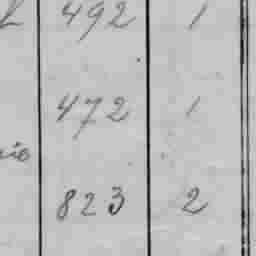 492 1
472 1
823 2